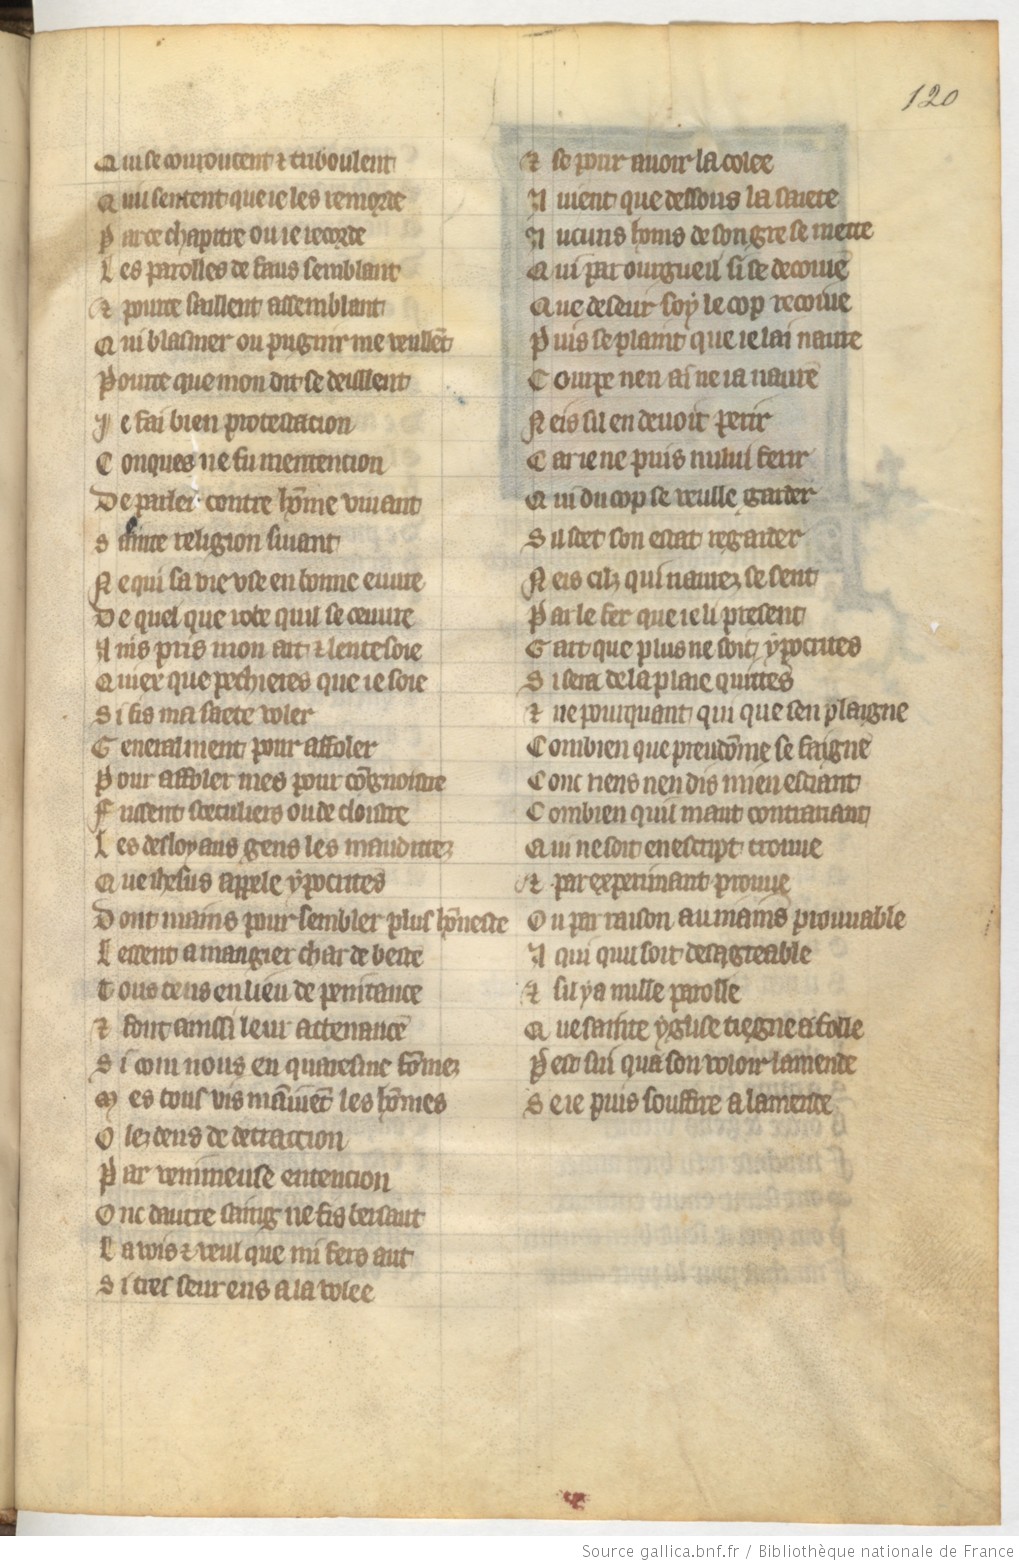 120
Qui se couroucent ⁊ triboulent
Qui sentent que ie les remorde
Par ce chapitre ou ie recorde
Les parolles de faus semblant
Et pource saillent assemblant
Qui blasmer ou pugnir me veullēt
Pource que mon dit se deullent
Je fai bien protestacion
Conques ne fu mentencion
De parler contre hōme viuant
Sainte religion siuant
Ne qui sa vie vse en bonne euure
De quel que robe quil se ceuure
Ains pris mon arc ⁊ lentesoie
Quiex que pechierres que ie soie
Si fis ma saete voler
Generalment pour affoler
Pour affoler mes pour cōgnoistre
Fussent seculiers ou de cloistre
Les desloyaus gens les maudittez
Que ihesus appele ypocrites
Dont mains pour sembler plus hōneste
Lessent a mangier char de beste
Tous tens en lieu de penitance
Et font ainssi leur attenance
Si com nous en quaresme fōmez
Mes tous vis maniuēt les hōmes
O lez dens de detraccion
Par venimeuse entencion
Onc dautre saing ne fis bersaut
La vois ⁊ veul que mi fers aut
Si tres seur ens a la volee
Et se pour auoir la colee
Auient que dessous la saiete
Aucuns homs de son gre se mette
Qui par ourgueil si se decoiue
Que deseur soy le cop recoiue
Puis se plaint que ie lai naure
Courpe nen ai ne ia naure
Neis sil en deuoit perir
Car ie ne puis nului ferir
Qui du cop se veulle garder
Sil scet son estat regarder
Neis cilz qui naurez se sent
Par le fer que ie li present
Gart que plus ne soit ypocrites
Si sera de la plaie quittes
Et ne pourquant qui que sen plaigne
Combien que preudōme se faigne
Conc riens nen dis mien esciant
Combien quil maut contrariant
Qui ne soit en escript trouue
Et par experimant prouue
Ou par raison au mains prouuable
A qui quil soit desagreable
Et sil ya nulle parolle
Que sainte yglise tiegne a folle
Prest sui qua son voloir lamende
Se ie puis souffire a lamende
Source gallica.bnf.fr / Bibliothèque nationale de France